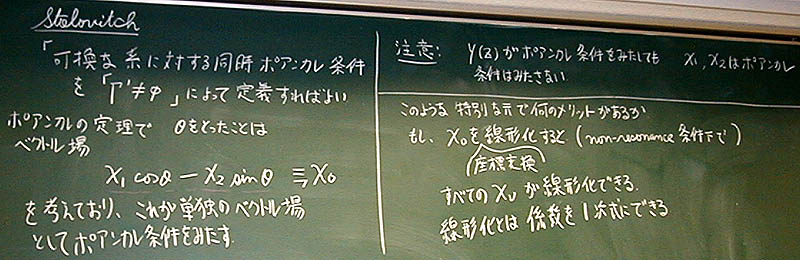 Stolovitch
「可換な系に対する同時ポアンカレ条件
を「Γ≠φ」によって定義すればよい
ポアンカレの定理で θをとったことは
ベクトル場
X₁ cosθ − X₂ sinθ ≡ X₀
を考えており、これが単独のベクトル場
としてポアンカレ条件をみたす.
注意: Y(z)がポアンカレ条件をみたしても X₁, X₂はポアンカレ
条件はみたさない
このような特別な元で何のメリットがあるか
もし、X₀を線形化すると (non-resonance 条件下で)
座標変換
すべての Xν が線形化できる.
線形化とは 係数を1次式にできる